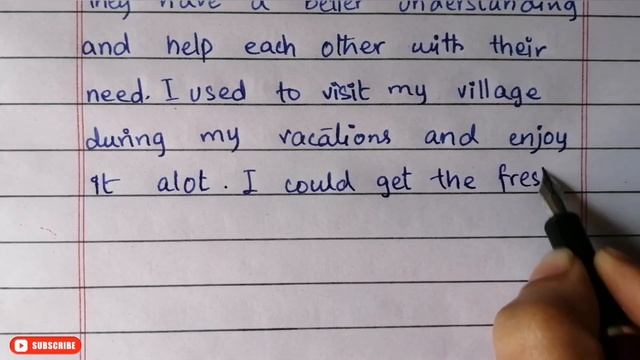 they have a better understanding
and help each other with their
need. I used to visit my village
during my vacations and enjoy
it alot. I could get the fres
SUBSCRIBE